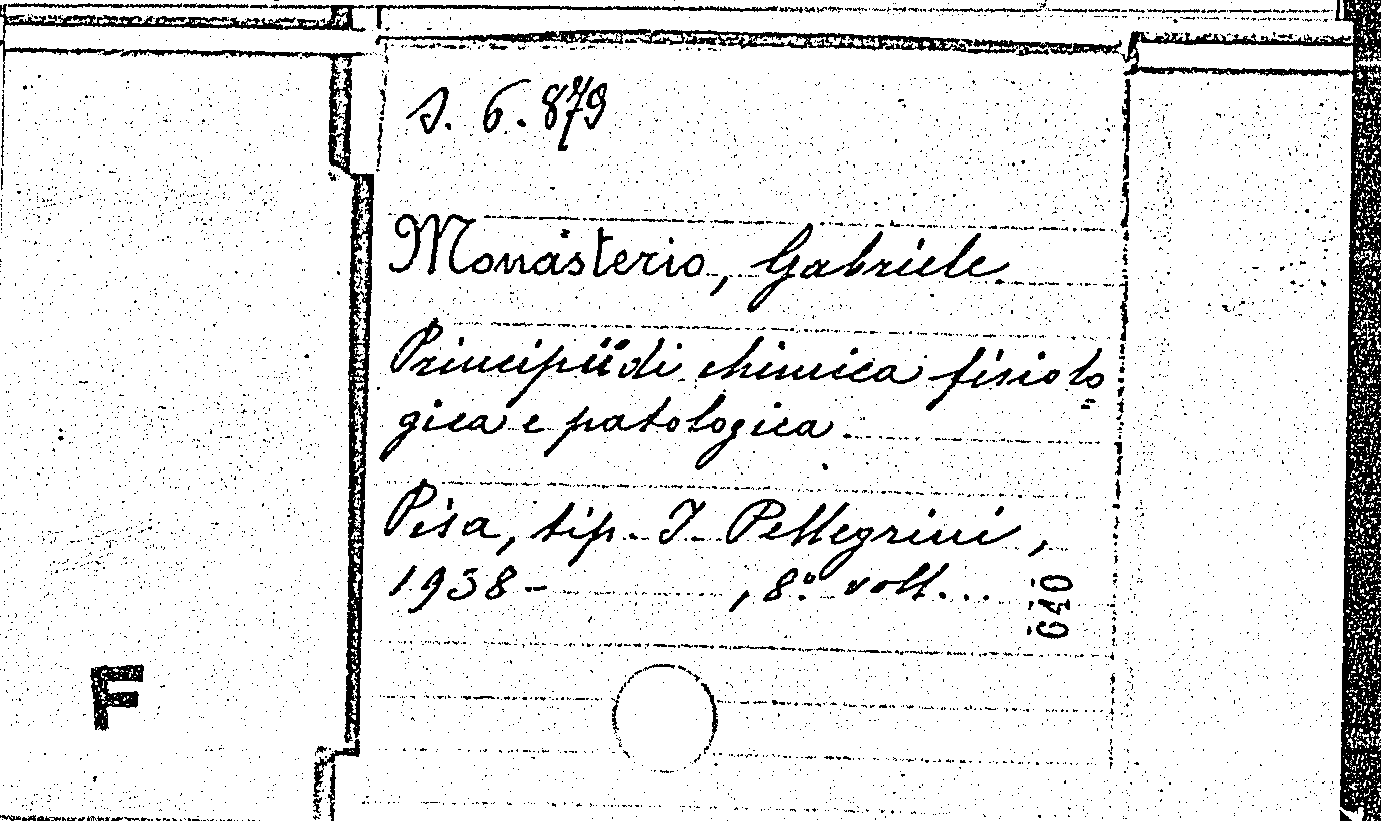 S. 6.879
Monasterio, Gabriele
Principii di chimica fisiolo
gica e patologica.
Pisa, tip. I. Pellegrini,
1938- , 8° voll...
640
F